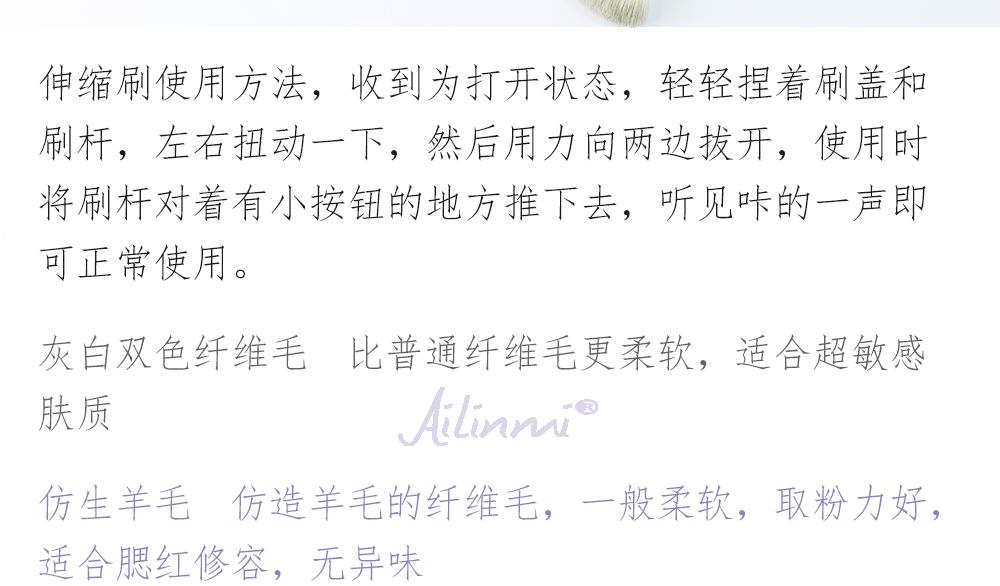 伸缩刷使用方法，收到为打开状态，轻轻捏着刷盖和
刷杆，左右扭动一下，然后用力向两边拔开，使用时
将刷杆对着有小按钮的地方推下去，听见咔的一声即
可正常使用。
灰白双色纤维毛　比普通纤维毛更柔软，适合超敏感
肤质
Ailinmi®
仿生羊毛　仿造羊毛的纤维毛，一般柔软，取粉力好，
适合腮红修容，无异味